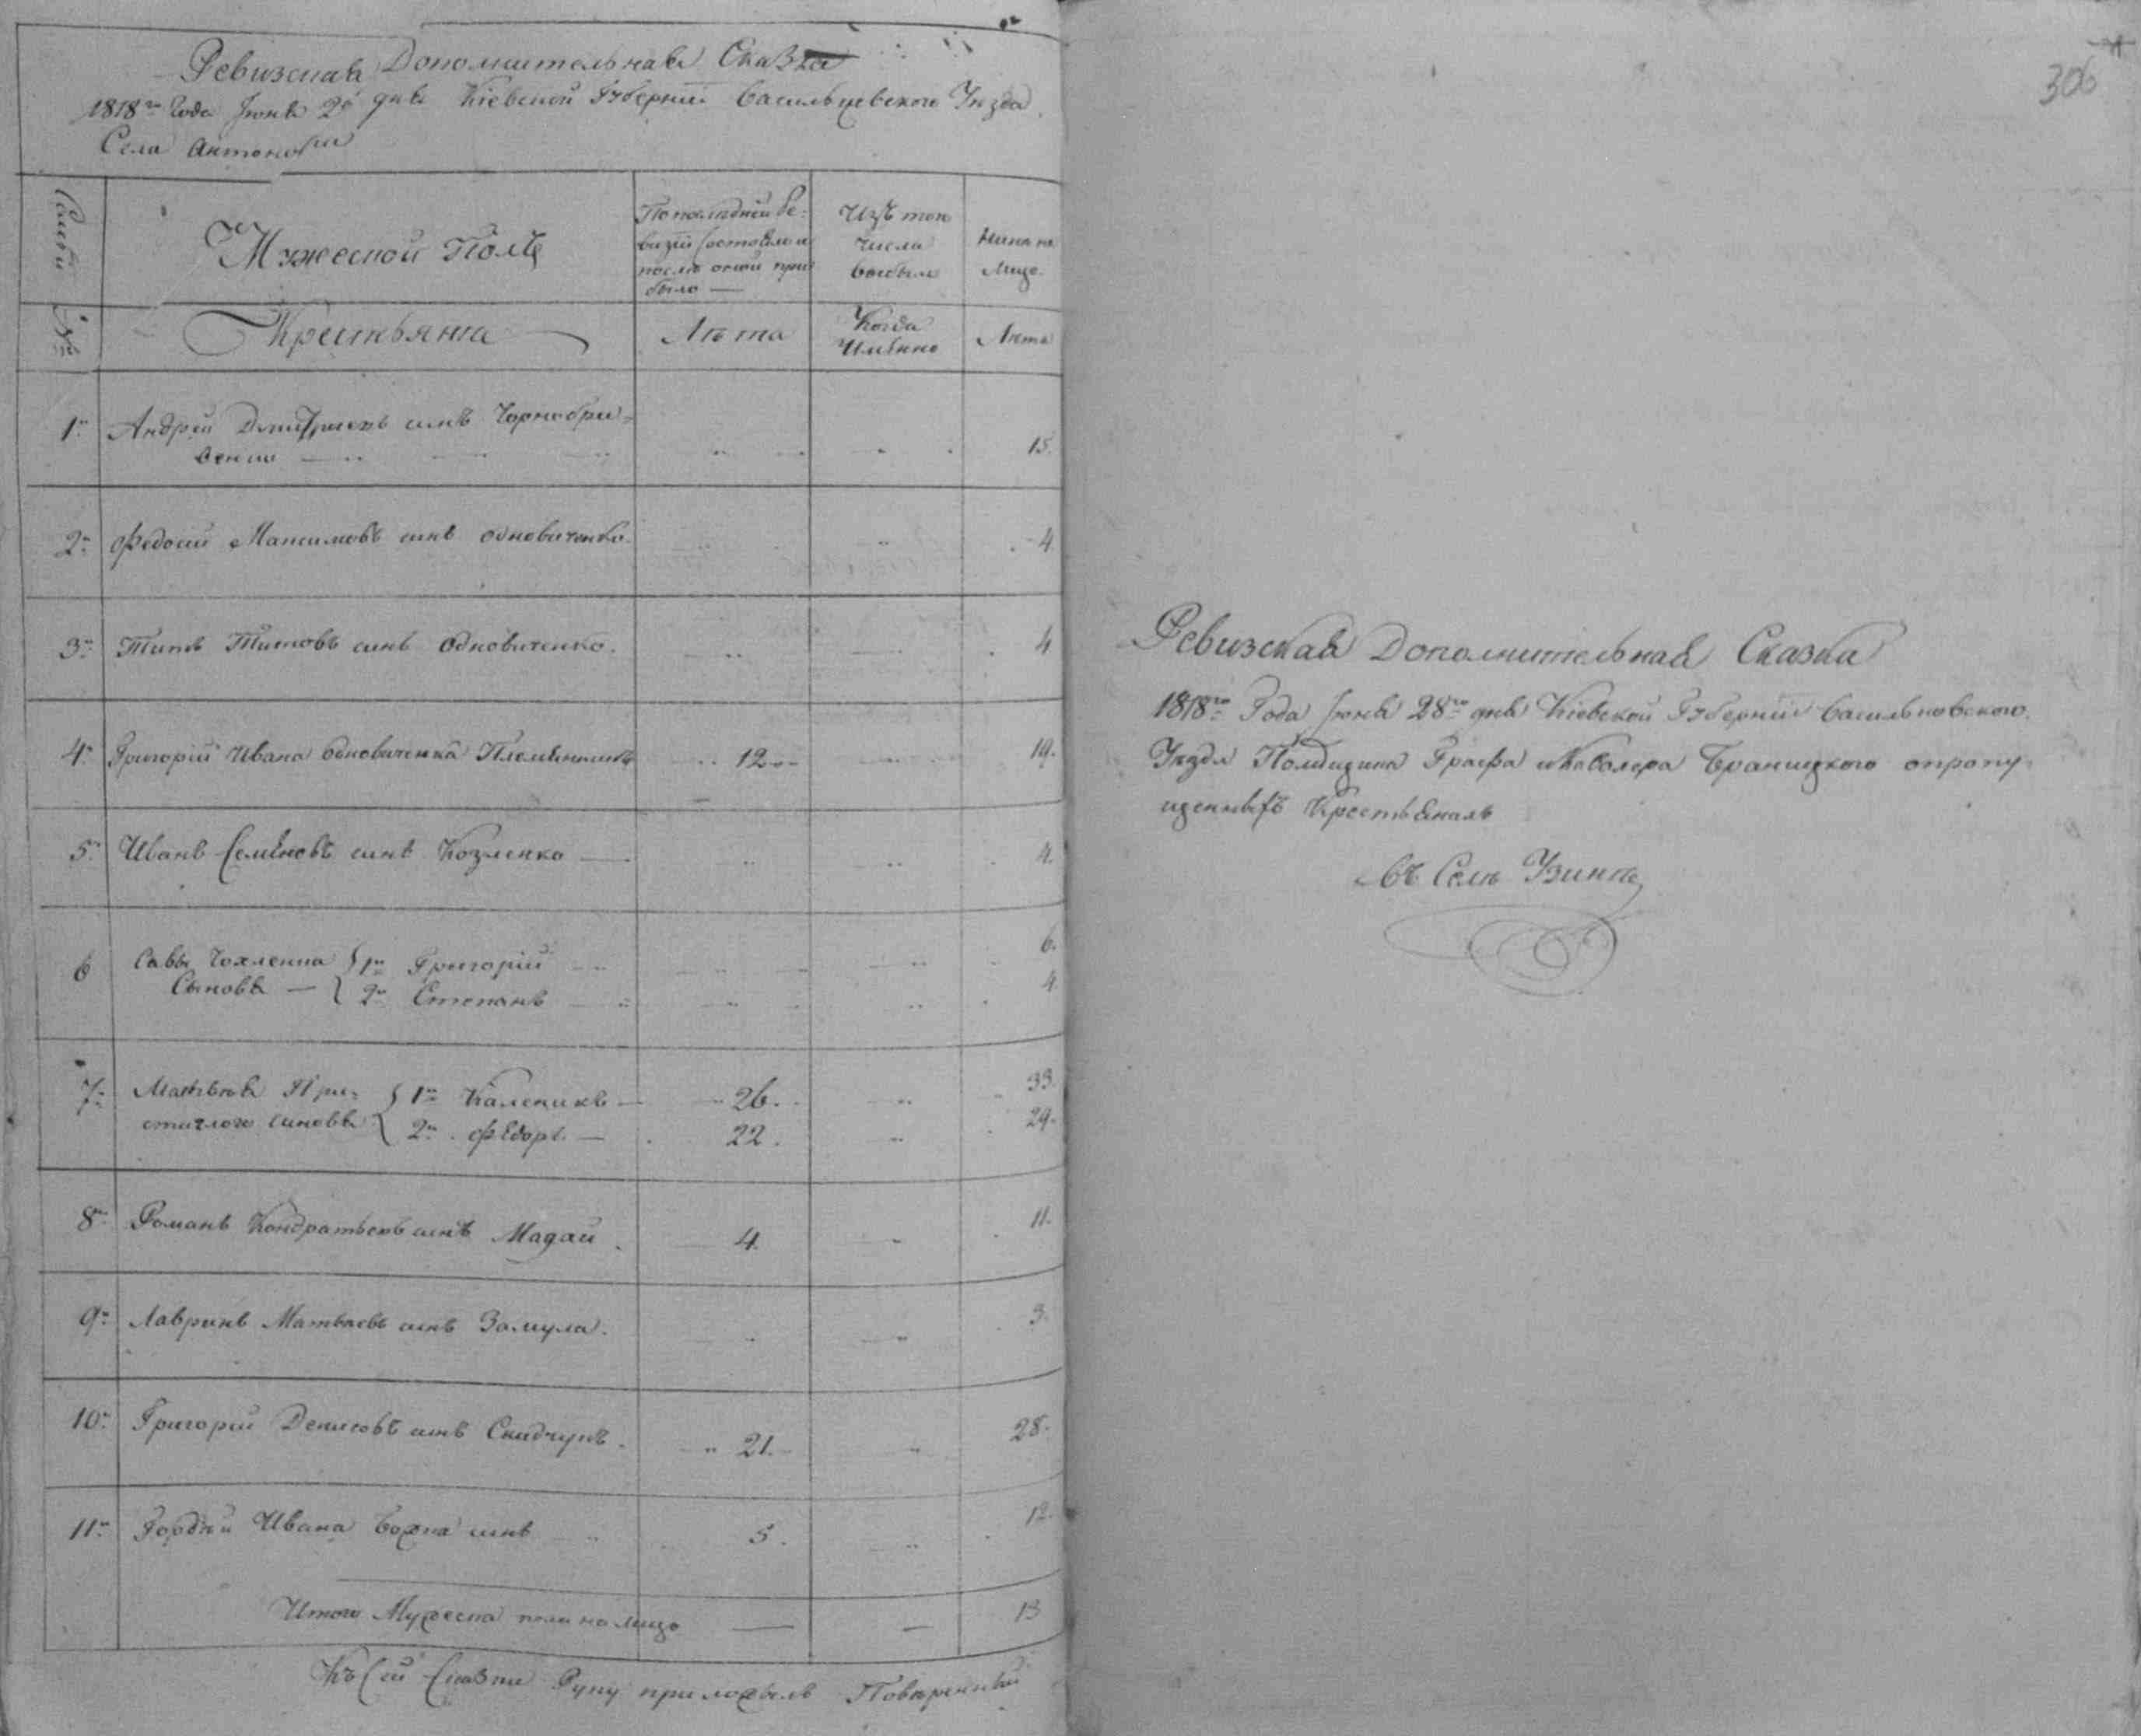 Ревизская Дополнительная Сказка
1818го Года Июня 28 дня Кіевской Губерніи Васильковского Уезда
Села Антонова
Мужеской Полъ
По последней Ре-
визіи состояло и
после оной при
было —
Изъ того
числа
выбыло
Ныне на
Лицо
№
Крестьяня
Лета
Когда
Имянно
Лета
1. Андрей Дмитріевъ синъ Чорнобри-
венко 15.
2. Федосій Максимовъ синъ Одновиченко. 4
3. Титъ Титовъ синъ Одновиченко. 4
4. Григорій Ивана Одновиченка Племянникъ 12 19.
5. Иванъ Семеновъ синъ Козленко 4.
6 Савы Чохленка 1й Григорій 6.
Сыновя 2й Степанъ 4
7. Матвея При- 1й Каленикъ 26. 33.
сталого синовя 2й Федоръ 22. 29.
8. Романъ Кондратьевъ синъ Мадай 4. 11.
9. Лавринъ Матвеевъ синъ Замула. 3.
10. Григорій Денисовъ синъ 21. 28.
11. Гордей Ивана синъ 5. 12.
Итого Мужеска пола на лицо 13
Къ Сей Сказки Руку приложилъ Поверенный
306
Ревизская Дополнительная Сказка
1818го Года Июня 28го дня Кіевской Губерніи Васильковского
Уезда Помещика Графа и Кавалера Браницкого о пропу-
щенныхъ Крестьянахъ
въ Селе Узине